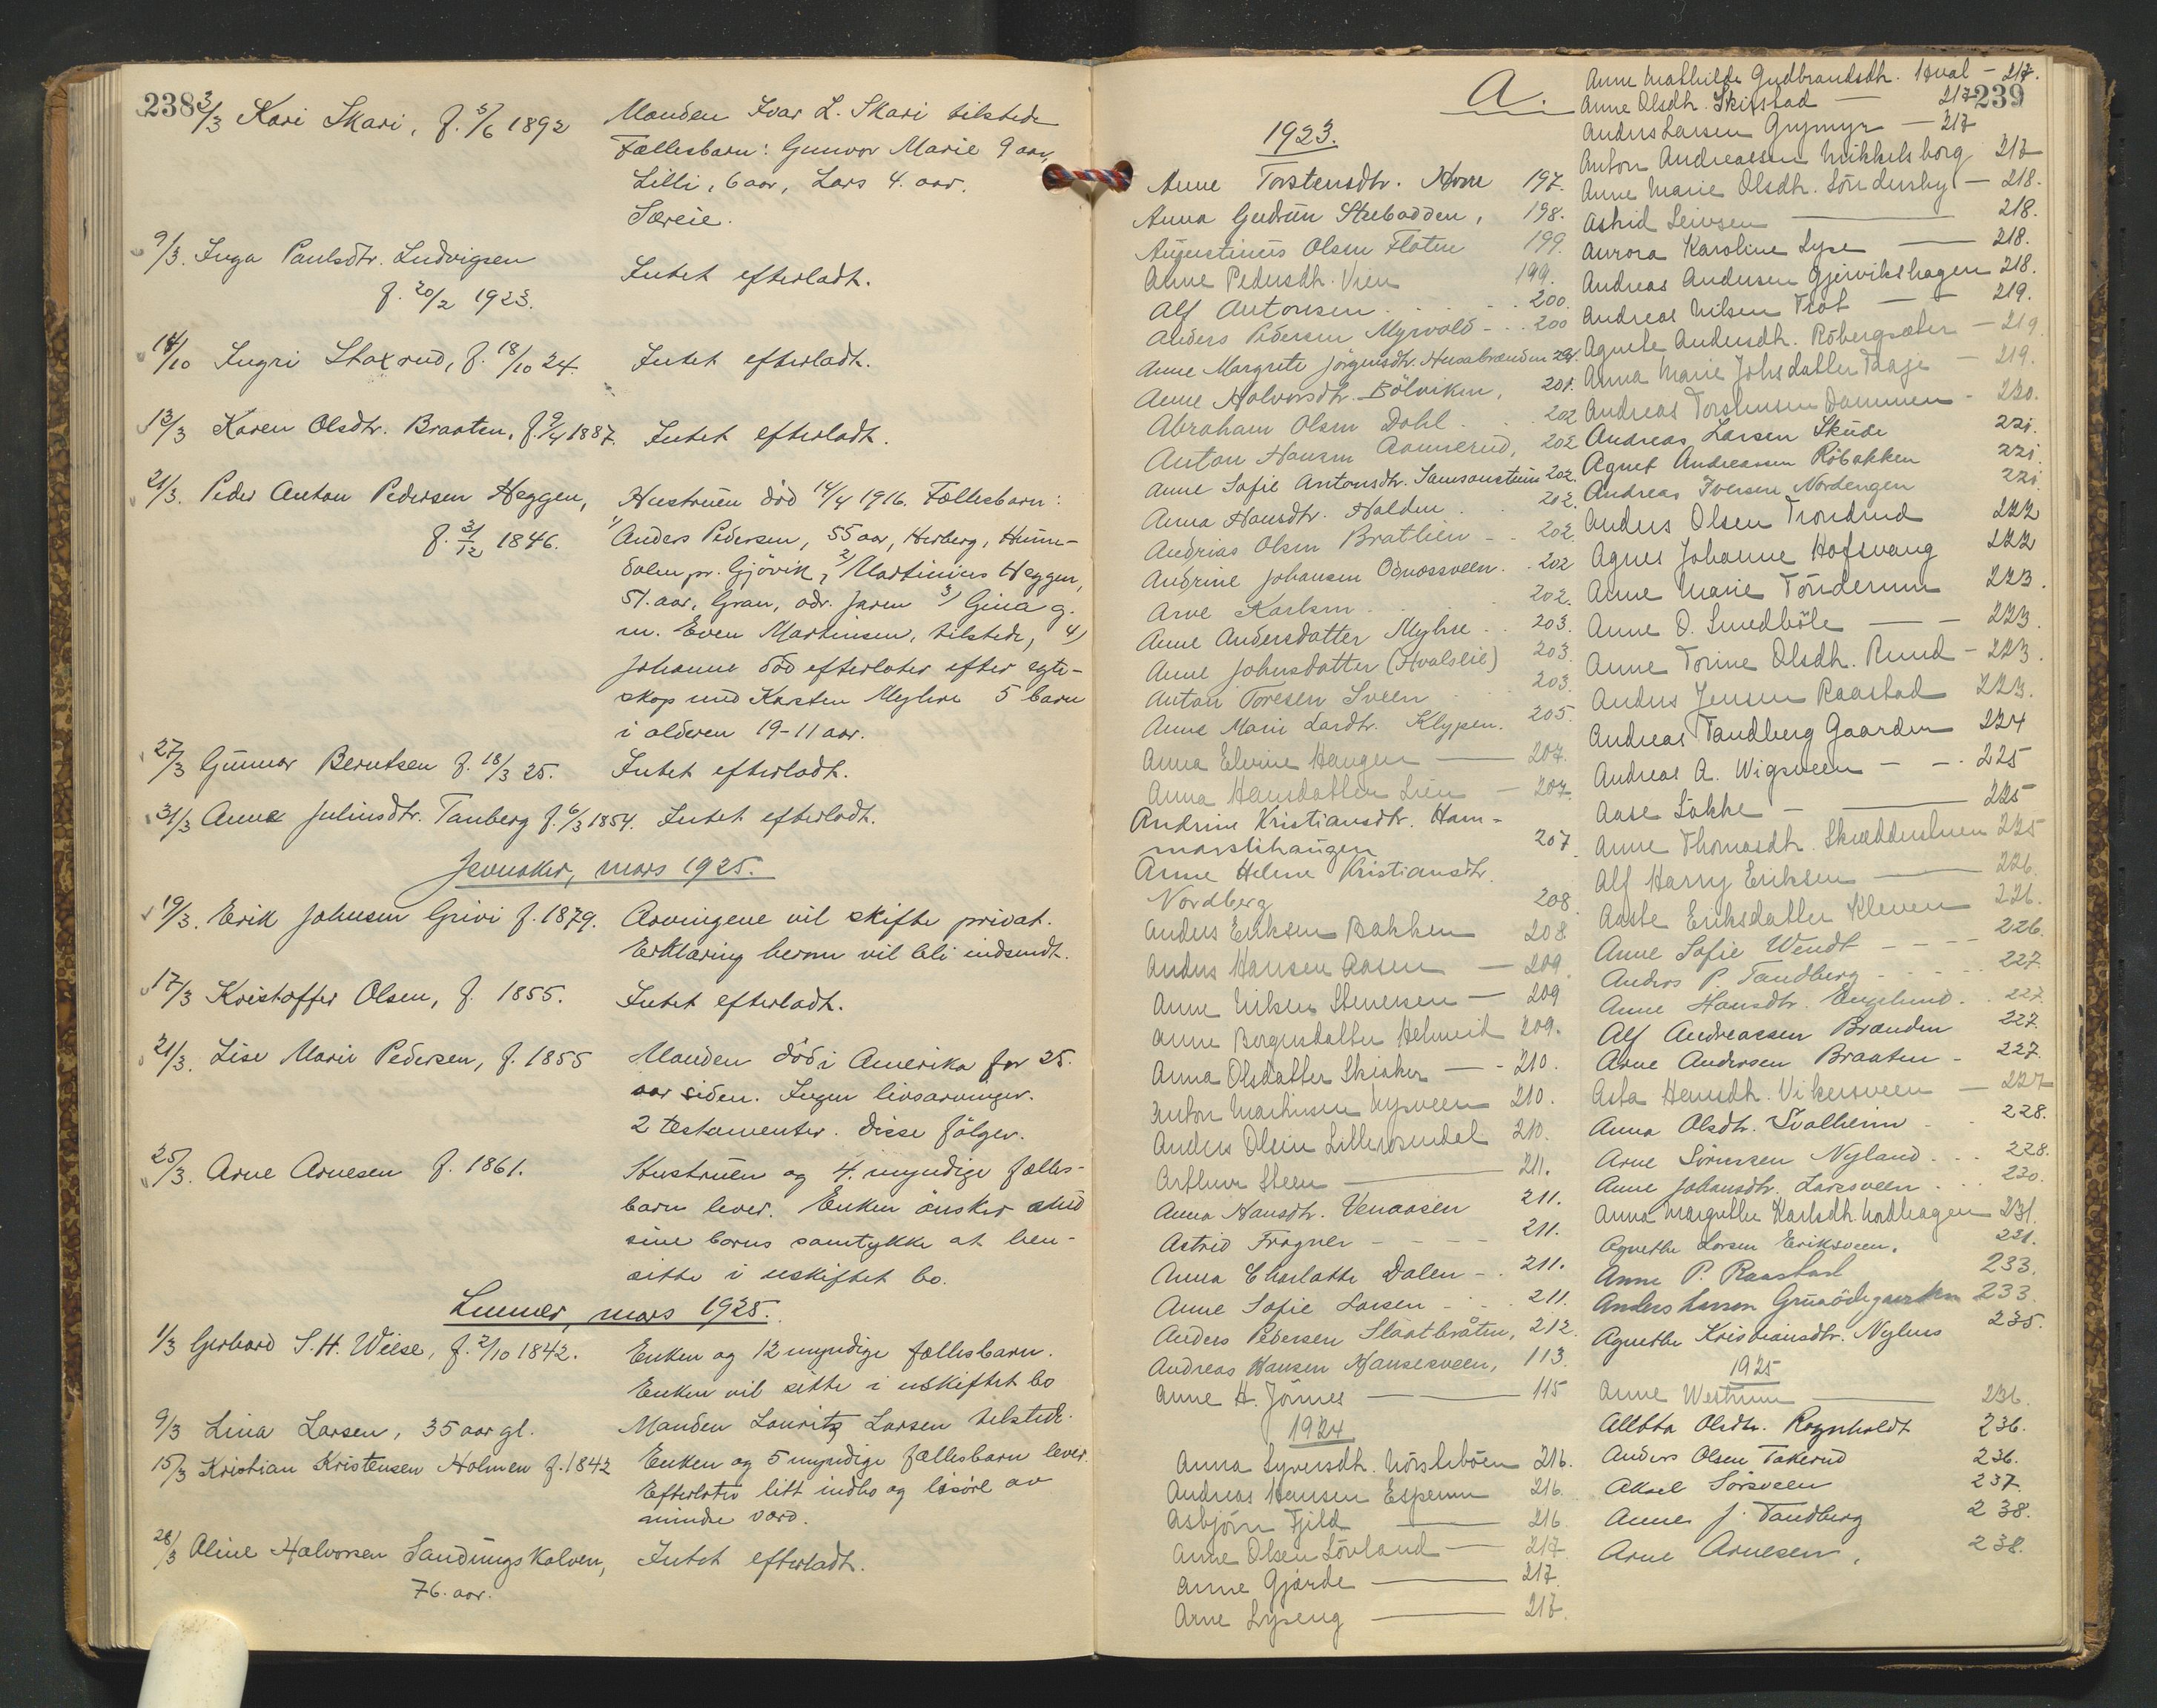 238
3/3 Kari Skari, f. 5/6 1892
Manden Ivar L. Skari tilstede
Fællesbarn: Gunvor Marie 9 aar,
Lilli, 6 aar, Lars 4. aar.
Særeie.
9/3. Inga Paulsdtr. Ludvigsen
f. 20/2 1923.
Intet efterladt.
14/10 Ingri Staxrud, f. 18/10 24.
Intet efterladt.
13/3 Karen Olsdtr. Braaten, f. 9/4 1887.
Intet efterladt.
21/3. Peder Anton Pedersen Heggen,
f. 31/12 1846.
Hustruen död 14/4 1916. Fællesbarn:
1) Anders Pedersen, 55 aar, Herberg, Hunn-
dalen pr. Gjövik, 2) Martinius Heggen,
51. aar, Gran, adr. Jaren 3) Gina g.
m. Even Martinsen, tilstede, 4)
Johanne död efterlater efter egte-
skap med Karsten Myhre 5 barn
i alderen 19-11 aar.
27/3 Gunnar Berntsen f. 18/3 25.
Intet efterladt.
31/3 Anne Juliusdtr. Tanberg f. 6/3 1854.
Intet efterladt.
Jevnaker, mars 1925.
19/3. Erik Johnsen Grivi f. 1879.
Arvingene vil skifte privat.
Erklæring herom vil bli indsendt.
17/3 Kristoffer Olsen, f. 1855.
Intet efterladt.
21/3. Lise Marie Pedersen, f. 1855
Manden död i Amerika for 25.
aar siden. Ingen livsarvinger.
2 testamenter. Disse fölger.
25/3. Arne Arnesen f. 1861.
Hustruen og 4. myndige fælles-
barn lever. Enken önsker med
sine barns samtykke at hen-
sitte i uskiftet bo.
Lunner, mars 1925.
1/3 Gerhard S. H. Wiese, f. 2/10 1842.
Enken og 12 myndige fællesbarn.
Enken vil sitte i uskiftet bo
9/3 Lina Larsen, 35 aar gl.
Manden Lauritz Larsen tilstede.
15/3 Kristian Kristensen Holmen f. 1842
Enken og 5 myndige fællesbarn lever.
Efterlater litt indbo og lösöre av
mindre værd.
28/3 Oline Halvorsen Sandungskalven,
76. aar.
Intet efterladt.
A.
1923.
Anne Torstensdtr. Horn 197.
Anna Gudrun Stubadden, 198.
Augustinus Olsen Flaten 199.
Anne Pedersdtr. Vien 199.
Alf Antonsen 200.
Anders Pedersen Myrvold 200
Anne Margrete Jörgensdtr. Husabrenden 201.
Anne Halvorsdtr. Bölviken, 201.
Abraham Olsen Dahl 202
Anton Hansen Aamerud, 202
Anne Sofie Antonsdtr. Samsonstuen 202.
Anna Hansdtr. Halden 202.
Andrias Olsen Bratlien 202.
Andrine Johansen Odnossveen 202
Arve Karlsen 202.
Anne Andersdatter Myhre 203.
Anne Johnsdatter (Hvalslie) 203.
Anton Toresen Sveen 203.
Anne Marie Larsdtr. Klypen. 205.
Anna Elvine Haugen 207.
Anna Hansdatter Lien 207.
Andrine Kristiansdtr. Ham-
marslihaugen 207
Anne Helene Kristiansdtr.
Nordberg 208
Anders Eriksen Bakken 208
Anders Hansen Aasen 209
Anne Nilsen Stenersen 209
Anne Borgersdatter Helmeid 209.
Anna Olsdatter Skiaker 210.
Anton Martinsen Nysveen 210.
Anders Olsen Lillerosendal 210.
Arthur Steen 211.
Anna Hansdtr. Venaasen 211.
Astrid Frögner 211.
Anna Charlotte Dalen 211.
Anne Sofie Larsen 211.
Anders Pedersen Slaatbråten, 212.
Andreas Hansen Hansesveen, 113.
Anne H. Jörnes 115
1924
Anna Syversdtr. Nörsteböen 216.
Andreas Hansen Espenrn 216.
Asbjörn Fjeld 216
Anne Olsen Sörland 217.
Anne Gjærde 217.
Arne Lyseng 217.
239
Anne Mathilde Gudbrandsdtr. Hval 217.
Anne Olsdtr. Skifstad 217
Anders Larsen Grymyr 217
Anton Andreassen Mikkelsborg 217
Anne Marie Olsdtr. Sönderby 218.
Astrid Seiersen 218.
Aurora Karoline Lyse 218.
Andreas Andersen Gjerviks hagen 218.
Andreas Nilsen Trat 219.
Agnete Andersdtr. Röbergsæter 219.
Anna Marie Johsdatter Taaje 219.
Andreas Torstensen Dammen 220.
Andreas Larsen Skute 221.
Agnet Andreassen Röbakken 221.
Andreas Iversen Nordengen 221.
Anders Olsen Trondrud 222
Agnes Johanne Hofsvang 222
Anne Marie Tönderum 223.
Anne O. Smedböle 223.
Anne Torine Olsdtr. Rund 223.
Anders Jensen Raastad 223.
Andreas Tandberg Gaarden 224
Andreas A. Wigsveen 225
Aase Lökke 225
Anne Thomasdtr. Skreddertuen 225
Alf Harry Eriksen 226.
Aaste Eriksdatter Kleven 226.
Anne Sofie Wendt 226.
Anders P. Tandberg 227.
Anne Hansdtr. Englund 227.
Alf Andreassen Branden 227.
Arne Andersen Braaten 227.
Asta Hansdtr. Vikersveen 227
Anna Olsdtr. Svalheim 228.
Arne Sörensen Nyland 228.
Anne Johansdtr. Larsveen 230.
Anna Margrethe Karlsdtr. Nordhagen 231.
Agnethe Larsen Eriksveen. 231.
Anne P. Raastad 233.
Anders Larsen Grinaödegaarden 233.
Agnethe Kristiansdtr. Nyhus 235.
1925
Anne Westrum 236.
Alletta Olsdtr. Rognholdt 236.
Anders Olsen Takerud 236.
Aksel Sörsveen 237.
Anne J. Tandberg 238.
Arne Arnesen, 238.